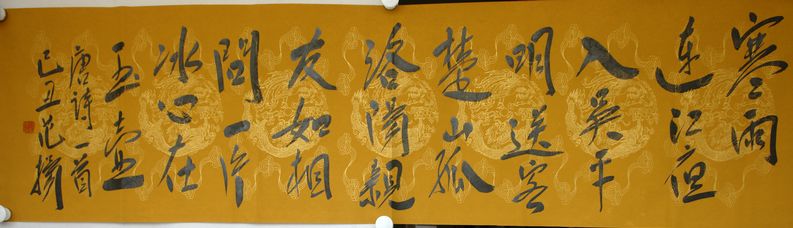 寒雨
連江夜
入吴平
明送客
楚山孤
洛陽親
友如相
問一片
冰心在
玉壺
唐詩一首
己丑范揚